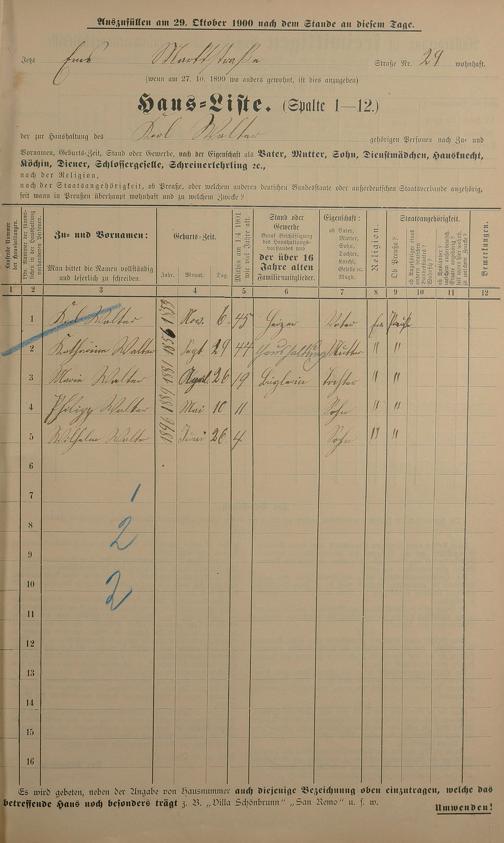 Auszufüllen am 29. Oktober 1900 nach dem Stande an diesem Tage.
Jetzt Ems Marktstraße Straße Nr. 29 wohnhaft.
(wenn am 27. 10. 1899 wo anders gewohnt, ist dies anzugeben)
Haus=Liste. (Spalte 1—12.)
der zur Haushaltung des Karl Walter gehörigen Personen nach Zu- und
Vornamen, Geburts-Zeit, Stand oder Gewerbe, nach der Eigenschaft als Vater, Mutter, Sohn, Dienstmädchen, Hausknecht,
Köchin, Diener, Schlossergeselle, Schreinerlehrling ec.,
nach der Religion,
nach der Staatsangehörigkeit, ob Preuße, oder welchem anderen deutschen Bundesstaate oder außerdeutschen Staatsverbande angehörig,
seit wann in Preußen überhaupt wohnhaft und zu welchem Zwecke?
Zu- und Vornamen:
Man bittet die Namen vollständig
und leserlich zu schreiben.
Geburts-Zeit.
Jahr. Monat. Tag.
Stand oder
Gewerbe
der über 16
Jahre alten
Familienmitglieder.
Eigenschaft:
ob Vater,
Mutter,
Sohn,
Tochter,
Religion.
Staatsangehörigkeit.
Ob Preuße?
Bemerkungen.
1 2 3 4 5 6 7 8 9 10 11 12
1 Karl Walter 1855 Nov. 6 45 Heizer Vater
2 Katharina Walter 1856 Sept 29 44 Haushaltung Mutter " "
3 Maria Walter 1881 April 26 19 Büglerin Tochter " "
4 Philipp Walter 1889 Mai 10 11 Sohn " "
5 Wilhelm Walter 1896 Juni 26 4 Sohn " "
6
7 1
8 2
9
10 2
11
12
13
14
15
16
Es wird gebeten, neben der Angabe von Hausnummer auch diejenige Bezeichnung oben einzutragen, welche das
betreffende Haus noch besonders trägt z. B. „Villa Schönbrunn" „San Remo" u. s. w.
Umwenden!